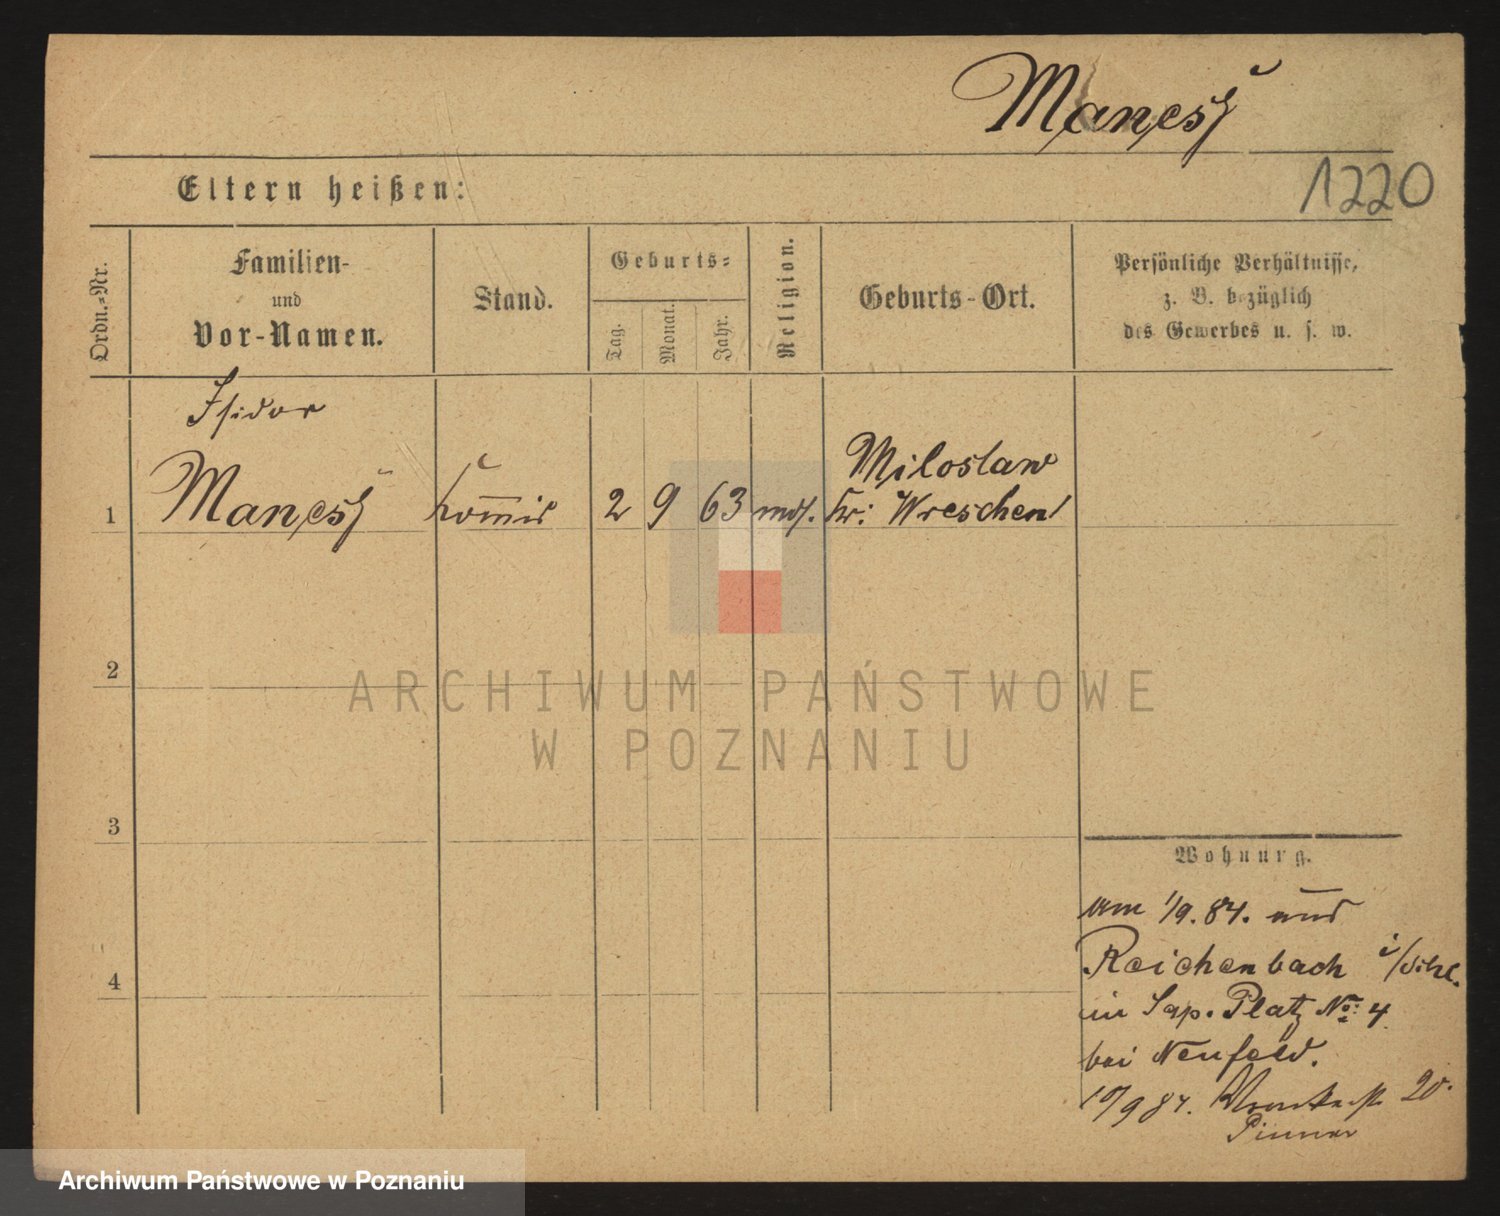 Manesz
1220
Eltern heißen:
Ordn.-Nr.
Familien-
und
Vor-Namen.
Stand.
Geburts-
Tag.
Monat.
Jahr.
Religion.
Geburts-Ort.
Persönliche Verhältnisse,
z. B. bezüglich
des Gewerbes u. s. w.
1
Isidor
Manesz
Kommis
2 9 63 mos.
Miloslaw
Kr: Wreschen
2
3
4
Wohnung.
am 1/9. 84. aus
Reichenbach i/Schl.
Platz No: 4
bei Neufeld.
10/9 84. 20.
Pinner
ARCHIWUM PAŃSTWOWE
W POZNANIU
Archiwum Państwowe w Poznaniu